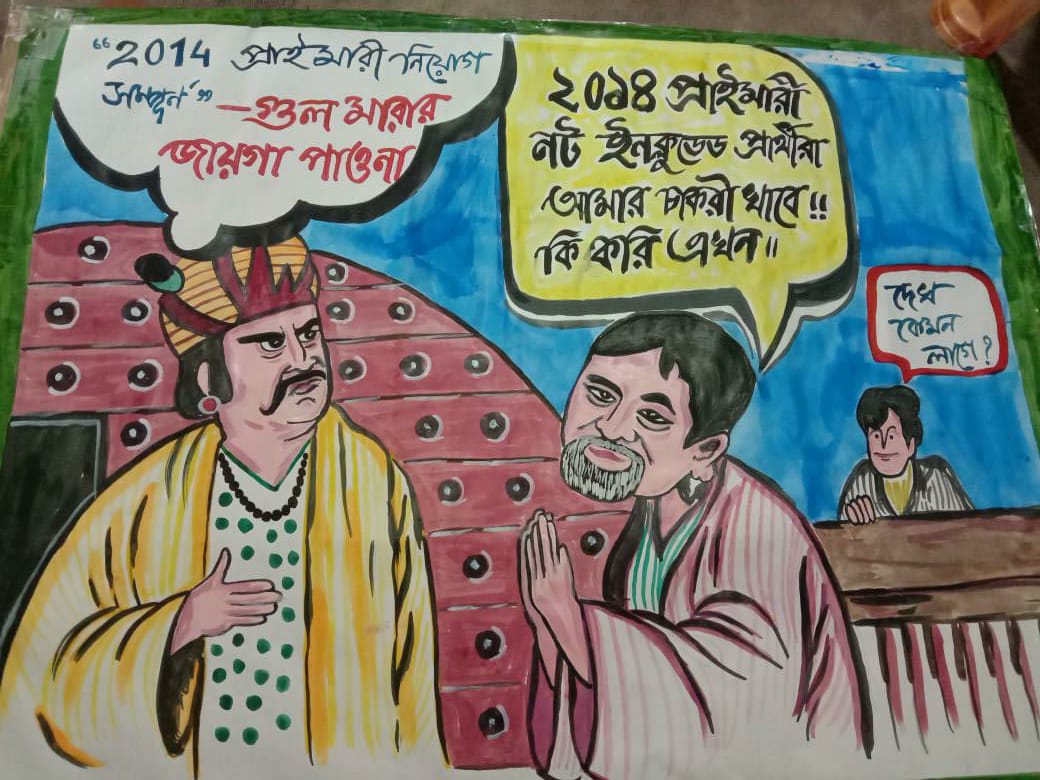 “2014 প্রাইমারী নিয়োগ
সম্পূর্ন” - গুল মারার
জায়গা পাওনা
২০১৪ প্রাইমারী
নট ইনক্লুডেড প্রার্থীরা
আমার চাকরী খাবে!!
কি করি এখন!!
দেখ
কেমন
লাগে?